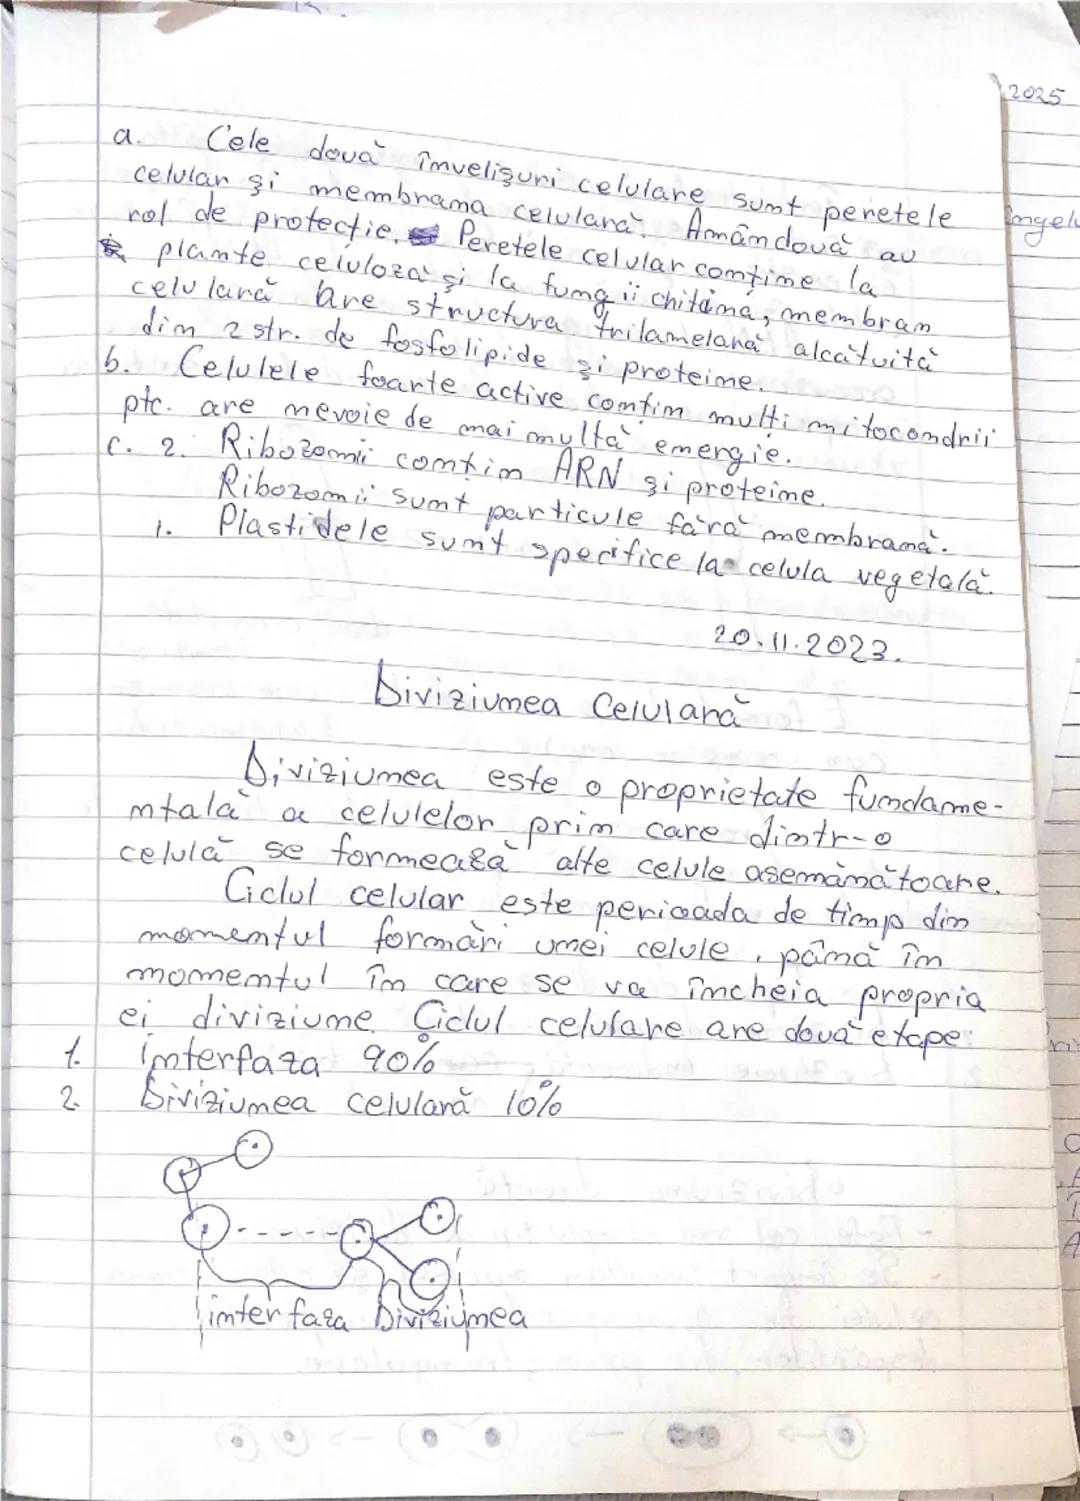 2025
a. Cele două învelișuri celulare sunt peretele
celular și membrana celulară. Amândouă au
rol de protecție. Peretele celular conține la
plante celuloză și la fungii chitină, membran
celulară are structura trilamelară alcătuită
din 2 str. de fosfolipide și proteine.
b. Celulele foarte active conțin mulți mitocondrii
ptc. are nevoie de mai multă energie.
c. 2. Ribozomii conțin ARN și proteine.
Ribozomii sunt particule fără membrană.
1. Plastidele sunt specifice la celula vegetală.
20.11.2023.
Diviziunea Celulară
Diviziunea este o proprietate fundame-
ntală a celulelor prin care dintr-o
celulă se formează alte celule asemănătoare.
Ciclul celular este perioada de timp din
momentul formări unei celule, până în
momentul în care se va încheia propria
ei diviziune. Ciclul celulare are două etape:
1. interfaza 90%
2. Diviziunea celulară 10%
interfaza Diviziunea